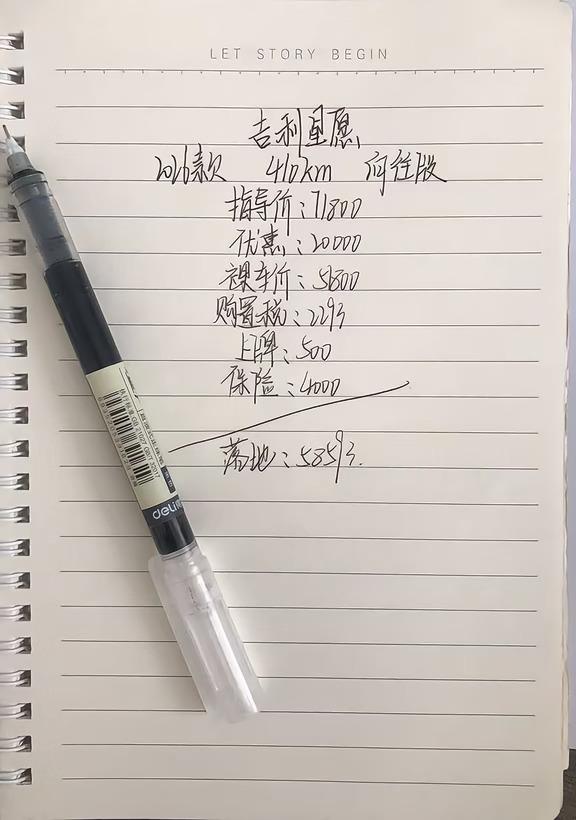 LET STORY BEGIN
吉利星愿
2026款 410km 向往版
指导价:71800
优惠:20000
裸车价:51800
购置税:2293
上牌:500
保险:4000
落地:58593.
deli